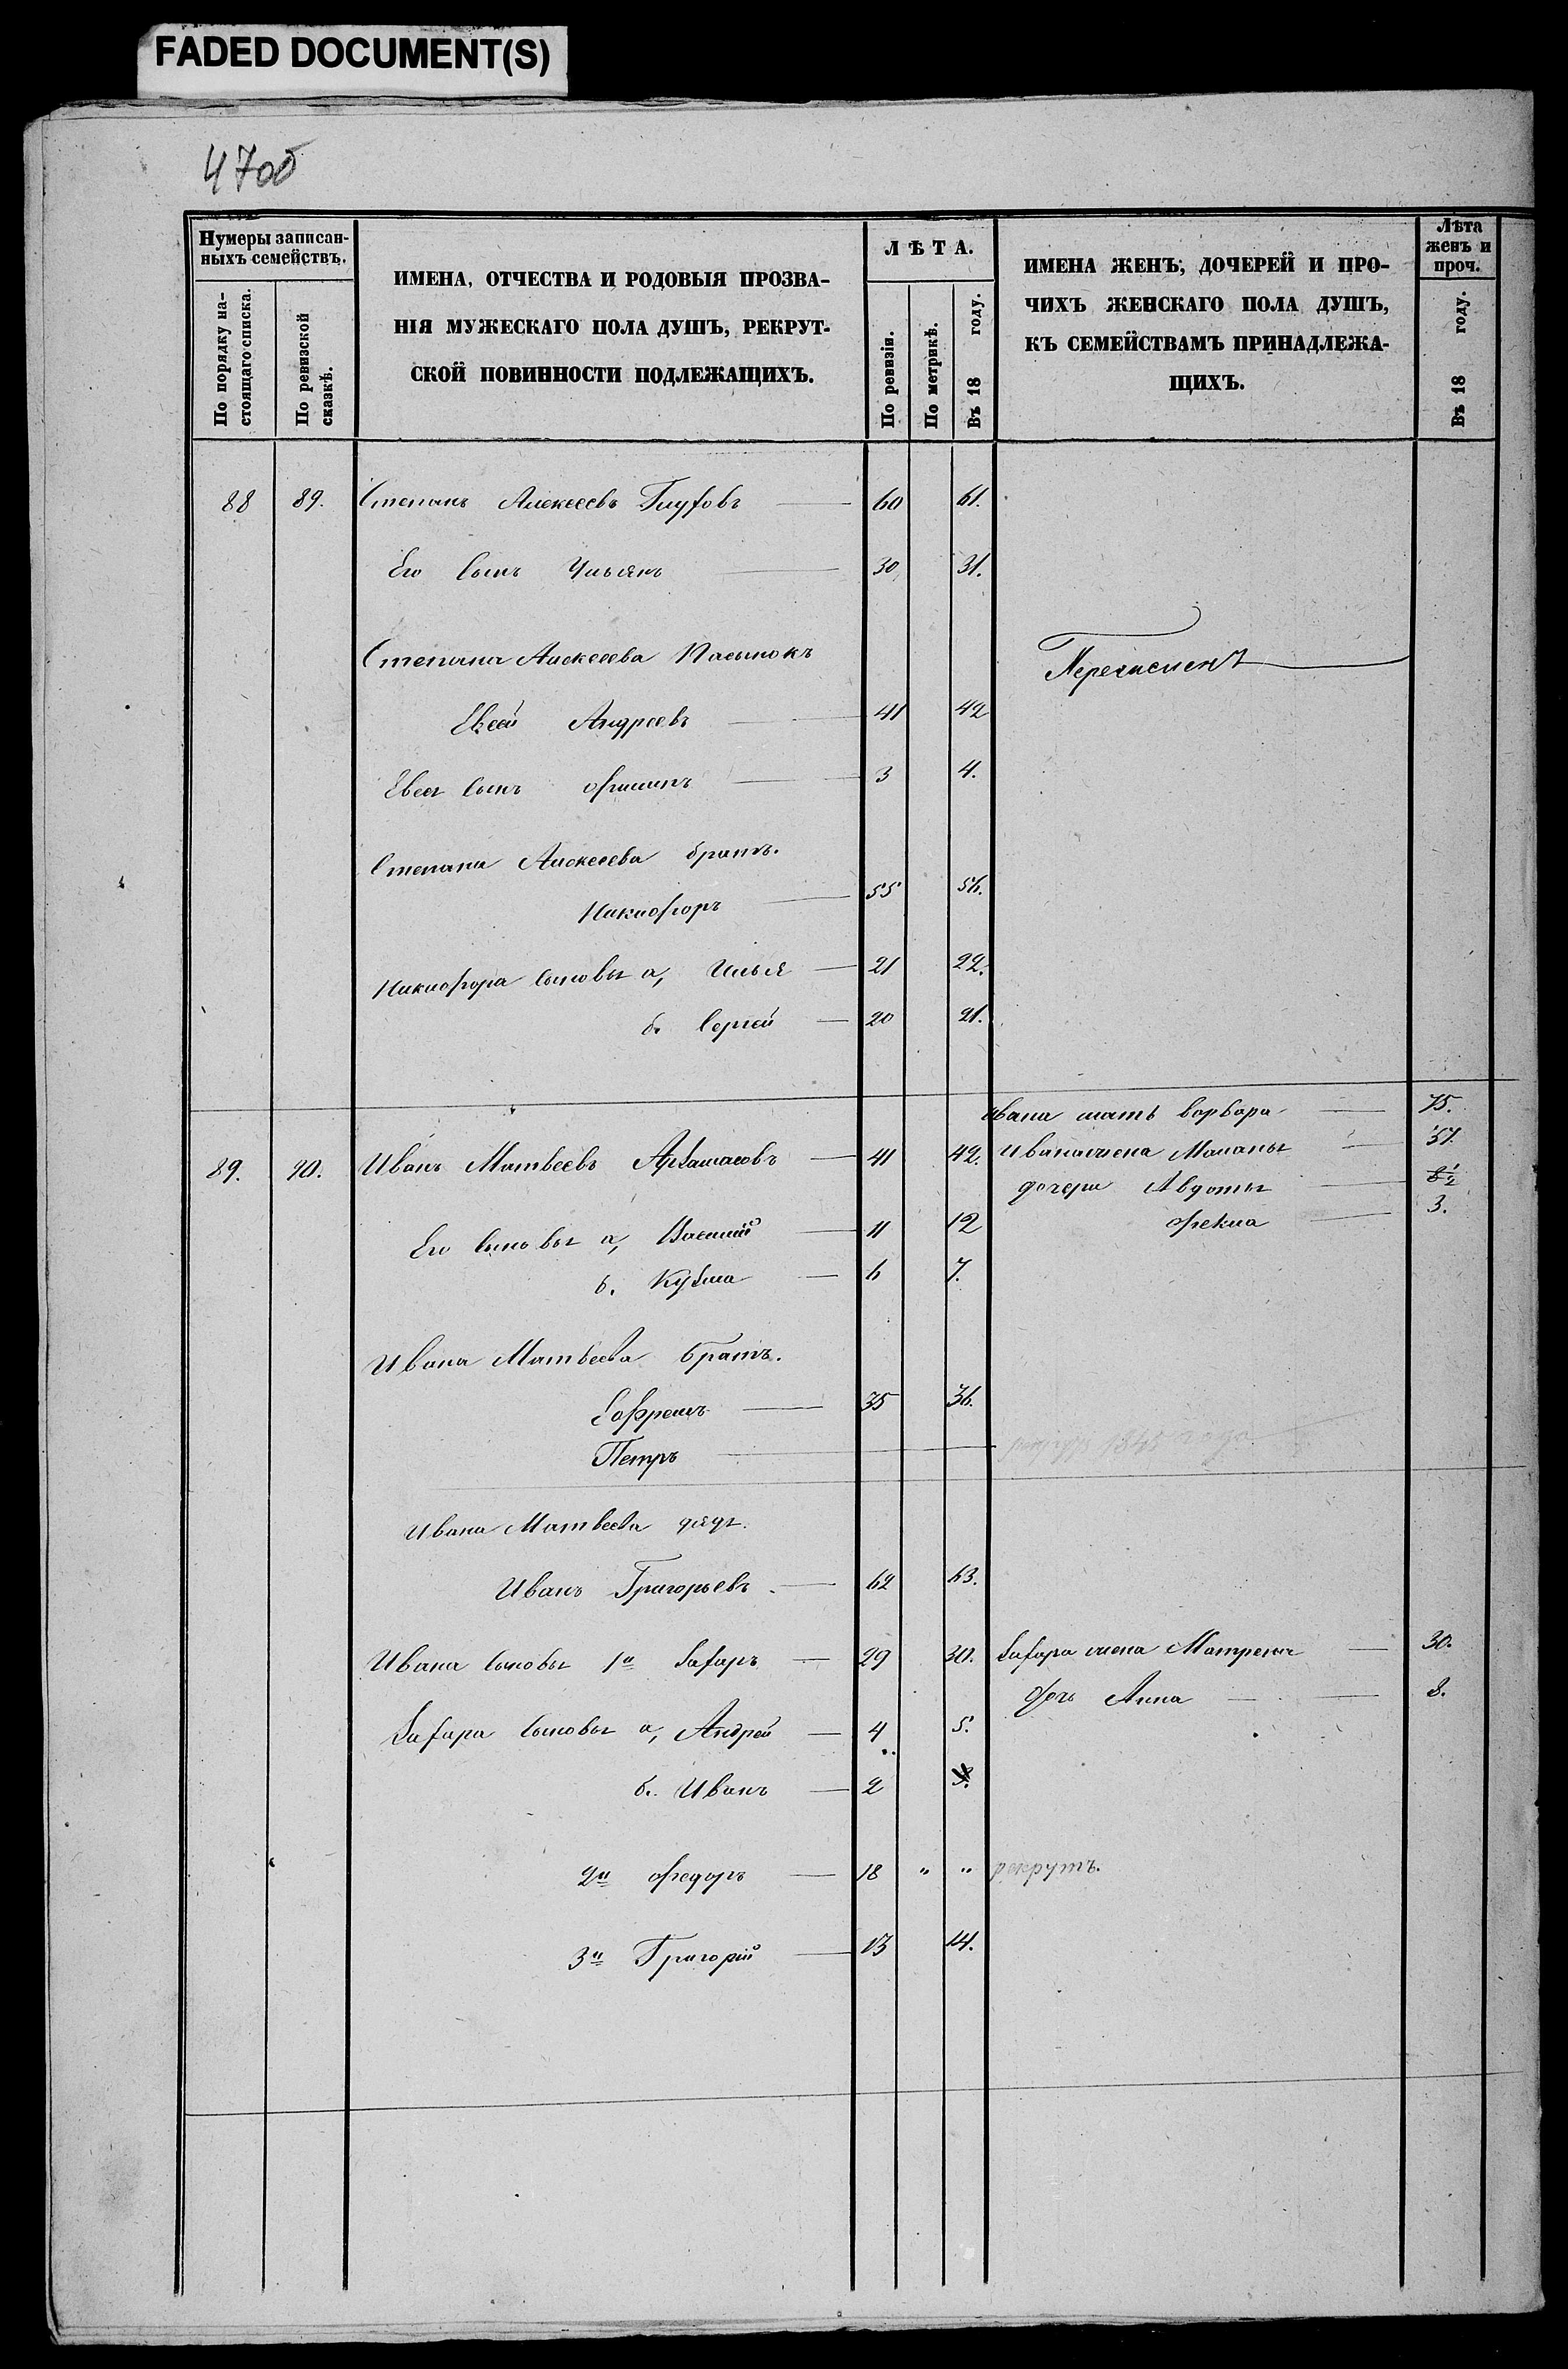 FADED DOCUMENT(S)
47об
Нумеры записан-
ныхъ семействъ.
По порядку на-
стоящаго списка.
По ревизской
сказкѣ.
ИМЕНА, ОТЧЕСТВА И РОДОВЫЯ ПРОЗВА-
НІЯ МУЖЕСКАГО ПОЛА ДУШЪ, РЕКРУТ-
СКОЙ ПОВИННОСТИ ПОДЛЕЖАЩИХЪ.
ЛѢТА.
По ревизіи.
По метрикѣ.
Въ 18 году.
ИМЕНА ЖЕНЪ, ДОЧЕРЕЙ И ПРО-
ЧИХЪ ЖЕНСКАГО ПОЛА ДУШЪ,
КЪ СЕМЕЙСТВАМЪ ПРИНАДЛЕЖА-
ЩИХЪ.
Лѣта
женъ и
проч.
Въ 18 году.
88 89. Степанъ Алексеевъ 60 61.
Его сынъ Ульянъ 30 31.
Степана Алексеева Пасынокъ
Перечисленъ
Евсей Андреевъ 41 42
Евсея сынъ Филипъ 3 4.
Степана Алексеева братъ.
Никифоръ 55 56.
Никифора сыновья а, Илья 21 22.
б. Сергей 20 21.
Ивана мать Варвара 75.
89. 90. Иванъ Матвеевъ 41 42. Ивана жена Маланья 37.
дочери Авдотья
Его сыновья а, Василий 11 12 Фекла 3.
б. Кузма 6 7.
Ивана Матвеева братъ.
Ефремъ 35 36.
Петръ 1848 года
Ивана Матвеева дядя.
Иванъ Григорьевъ. 62 63.
Ивана сыновья 1й Захаръ 29 30. Захара жена Матрена 30.
дочь Анна 8.
Захара сыновья а, Андрей 4 5.
б. Иванъ 2 3.
2й Федоръ 18 " " рекрутъ.
3й Григорій 13 14.